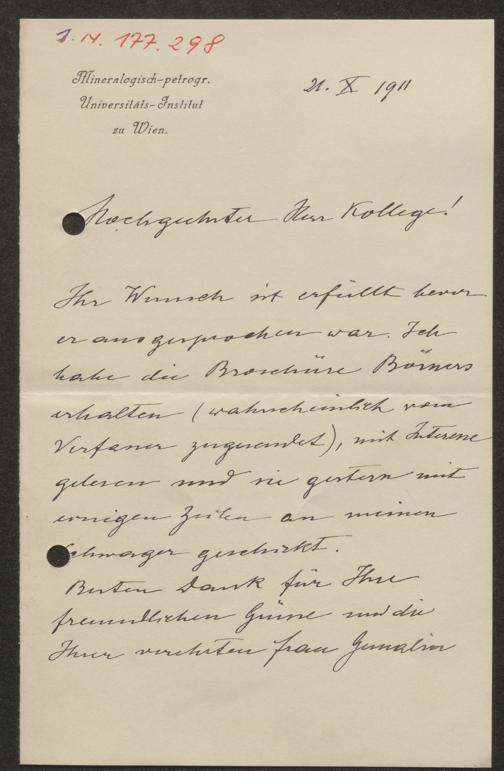 I. N. 177.298
Mineralogisch-petrogr.
Universitäts-Institut
zu Wien.
21. X 1911
Hochgeehrter Herr Kollege!
Ihr Wunsch ist erfüllt bevor
er ausgesprochen war. Ich
habe die Broschüre Börners
erhalten (wahrscheinlich vom
Verfasser zugesandt), mit Interesse
gelesen und sie gestern mit
einigen Zeilen an meinen
Schwager geschickt.
Besten Dank für Ihre
freundlichen Grüsse und die
Ihrer verehrten Frau Gemalin